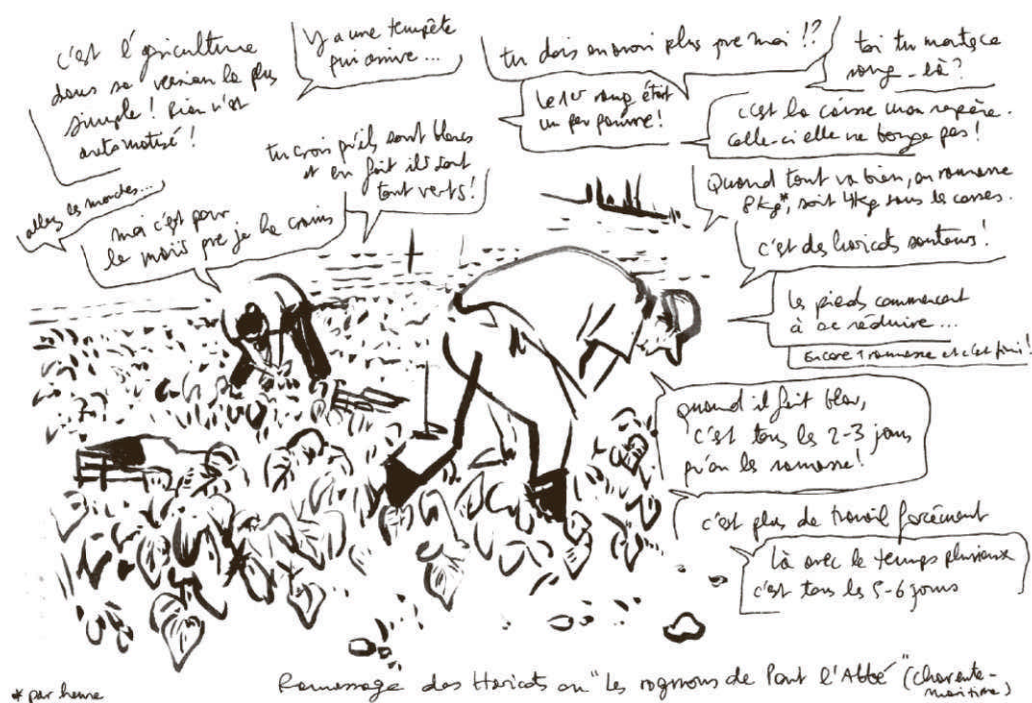 c'est l'agriculture
dans sa version la plus
simple ! Rien n'est
automatisé !
Y a une tempête
qui arrive ...
tu dois en avoir plus que moi !?
toi tu montes ce
rang-là ?
Le 1er rang était
un peu pauvre !
c'est la caisse mon repère.
Celle-ci elle ne bouge pas !
tu crois qu'ils sont blancs
et en fait ils sont
tout verts !
allez les mordes...
moi c'est pour
le maïs que je le crains
Quand tout va bien, on ramasse
8kg*, soit 4kg sous les cosses.
c'est des haricots sauteurs !
Les pieds commencent
à se réduire ...
Encore 1 ramasse et c'est fini !
quand il fait beau,
c'est tous les 2-3 jours
qu'on les ramasse !
c'est plus de travail forcément
là avec le temps pluvieux
c'est tous les 5-6 jours
* par heure
Ramassage des Haricots ou "Les rognons de Pont l'Abbé" (charente-
maritime)